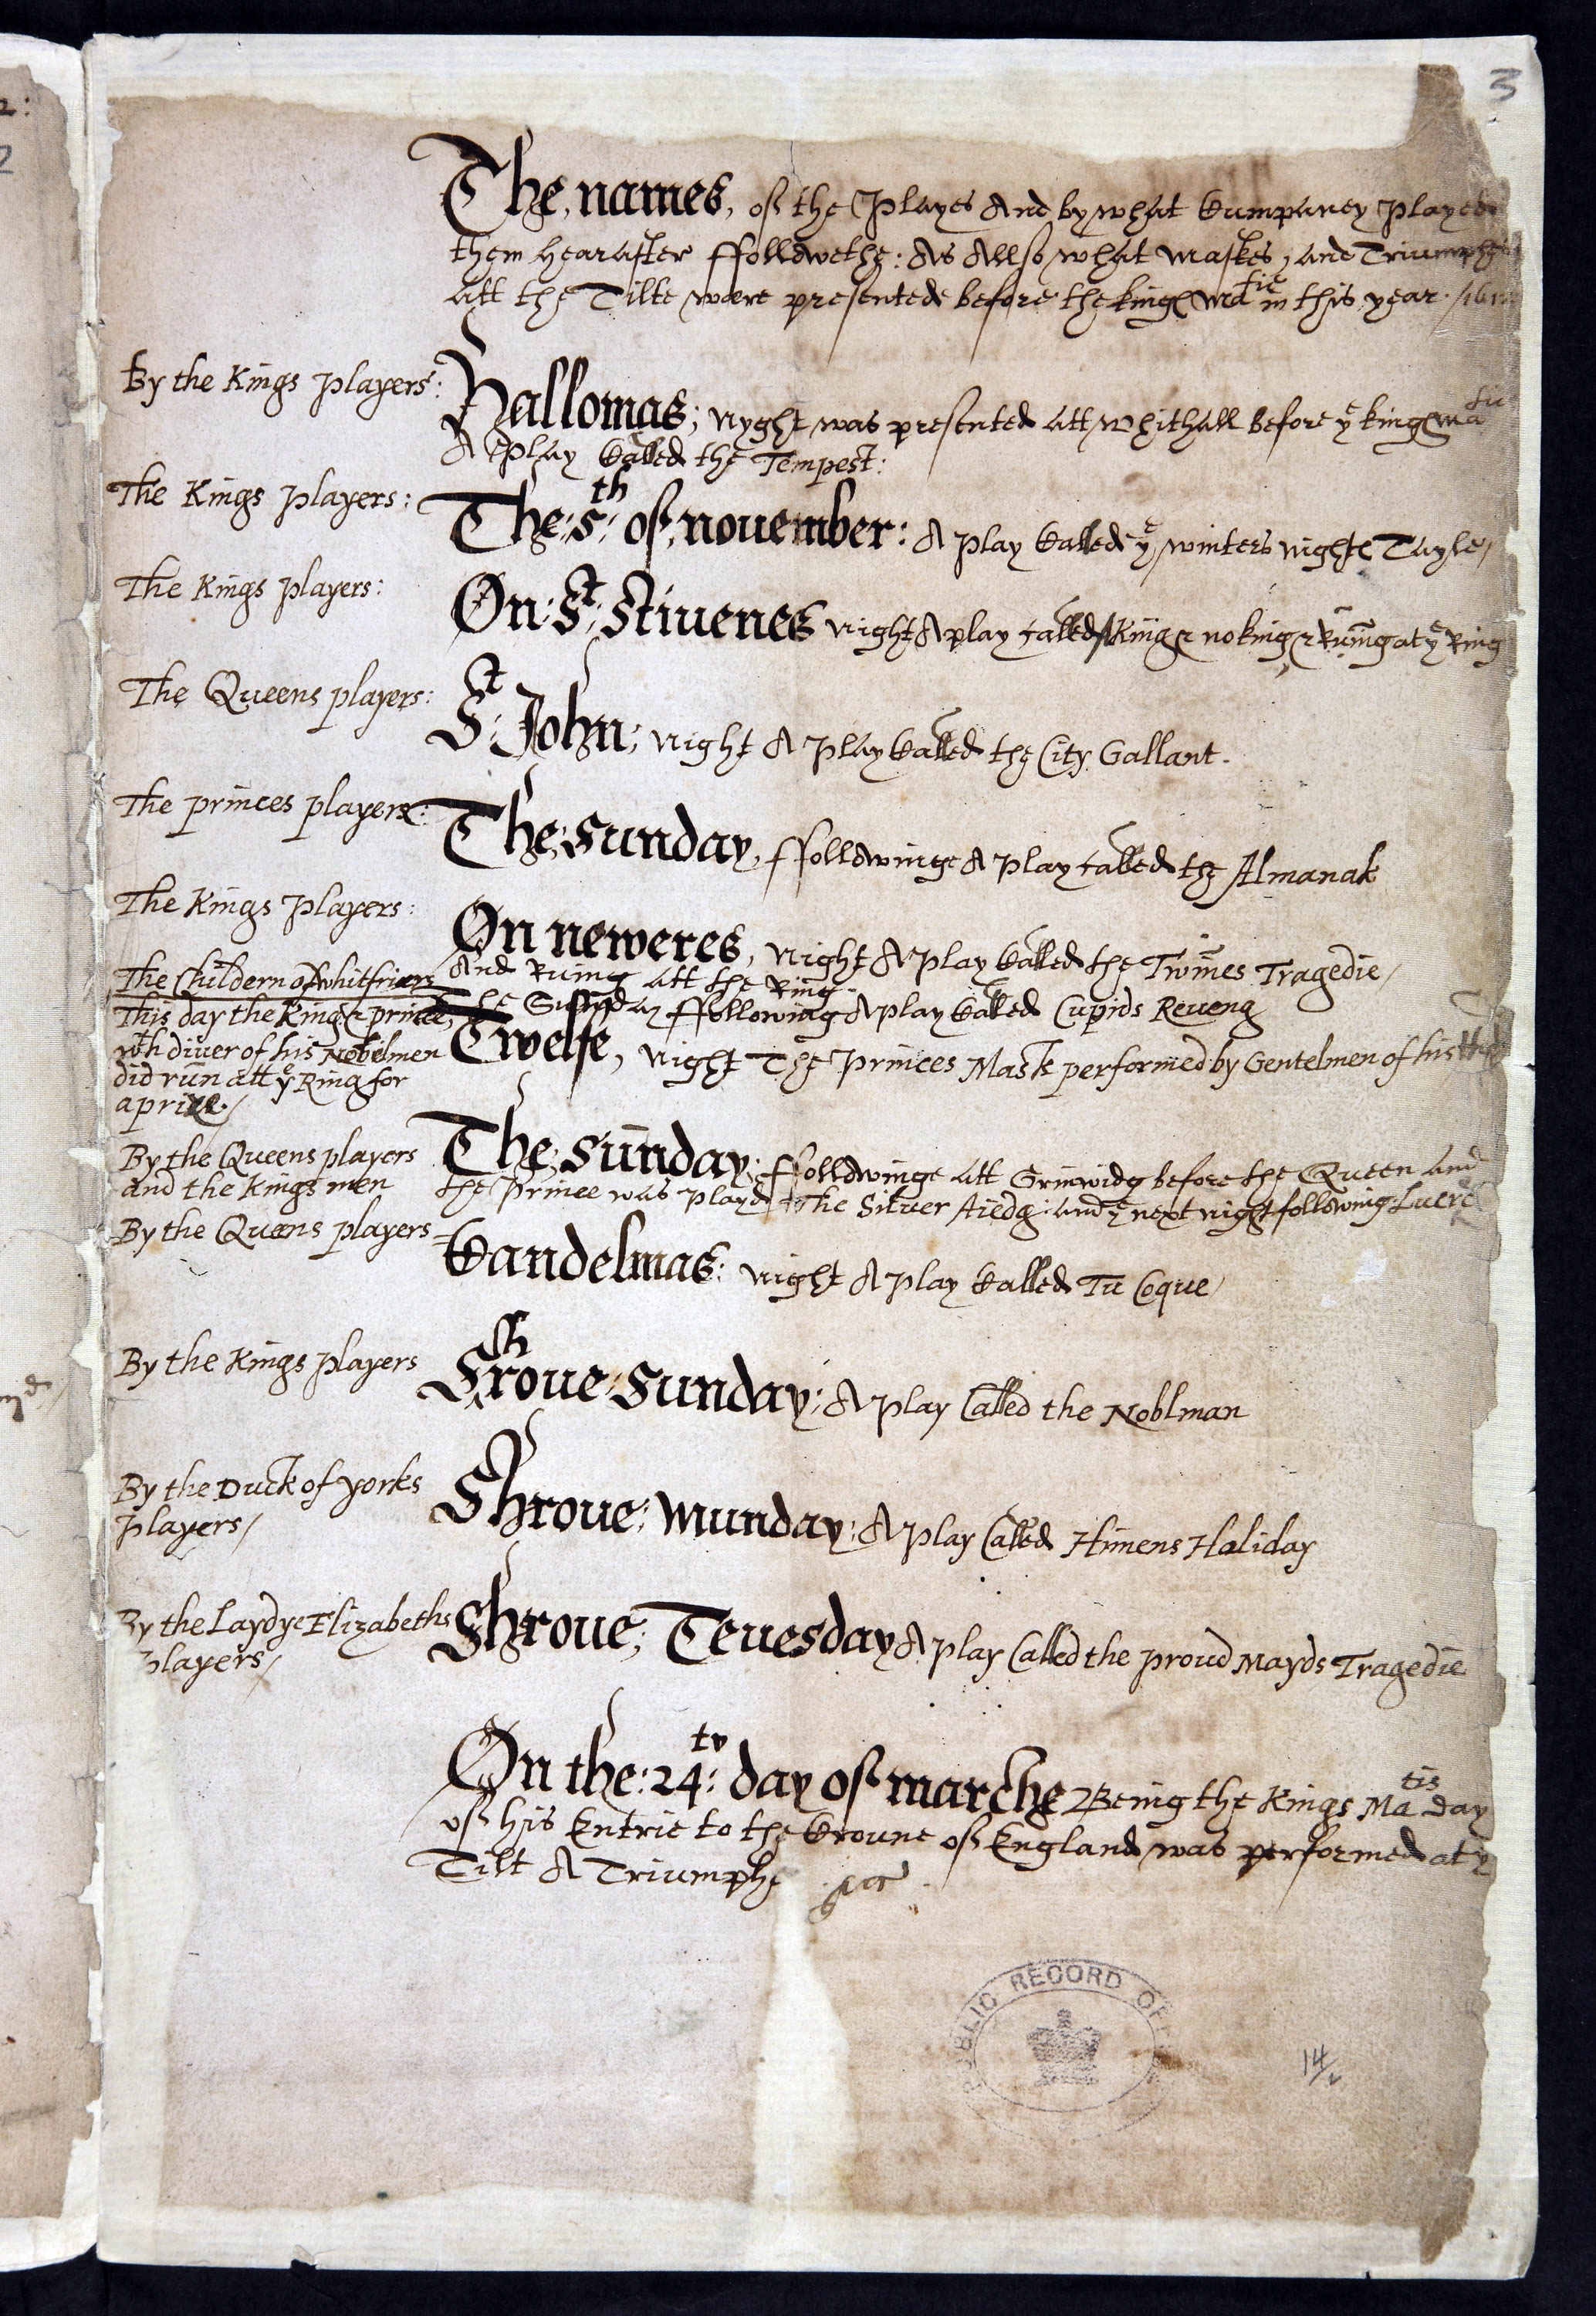 3
The names, of the Playes And by what Cumpaney played
them hearafter ffollowethe: As Allso what Maskes, and Triumphes
att the Tilte were presented before the kinges Ma^tie in this year. 1612
By the Kings players:
Hallomas; nyght was presented att Whithall before y^e kinges Ma^tie
A play Called the Tempest:
The Kings players:
The: 5^th: of november: A play Called y^e winters nighte Tayle/
The Kings players:
On: S^t: Stiuenes night A play called A King & no king & Runing at y^e Ring
The Queens players:
S^t: John; night A play Called the City Gallant.
The princes players:
The, Sunday, ffollowinge A play called the Almanak
The Kings players:
On neweres, night A play Called the Twines Tragedie/
And Runing att the Ring
The Childern of Whitfriars
The Sunday ffollowing A play Called Cupids Reueng
This day the King & prince,
wth diuer of his Nobelmen
did run att y^e Ring for
a prize./
Twelfe, night The Princes Mask performed by Gentelmen of his
By the Queens players
and the Kings men
The, Sunday: ffollowinge att Grinwidg before the Queen and
the Prince was playd The Siluer Aiedg: and y^e next night following Lucre
By the Queens players
Candelmas: night A play Called Tu Coque/
By the Kings players
Shroue: Sunday: A play Called the Noblman
By the Duck of Yorks
players/
Shroue: Munday: A play Called Himens Haliday
By the Laydye Elizabeths
players/
Shroue; Teuesday A play Called the proud Mayds Tragedie
On the: 24^ty: day of marche Being the Kings Ma^tis day
of his Entrie to the Croune of England was performed at y^e
Tilt A Triumphe
PUBLIC RECORD OF
14